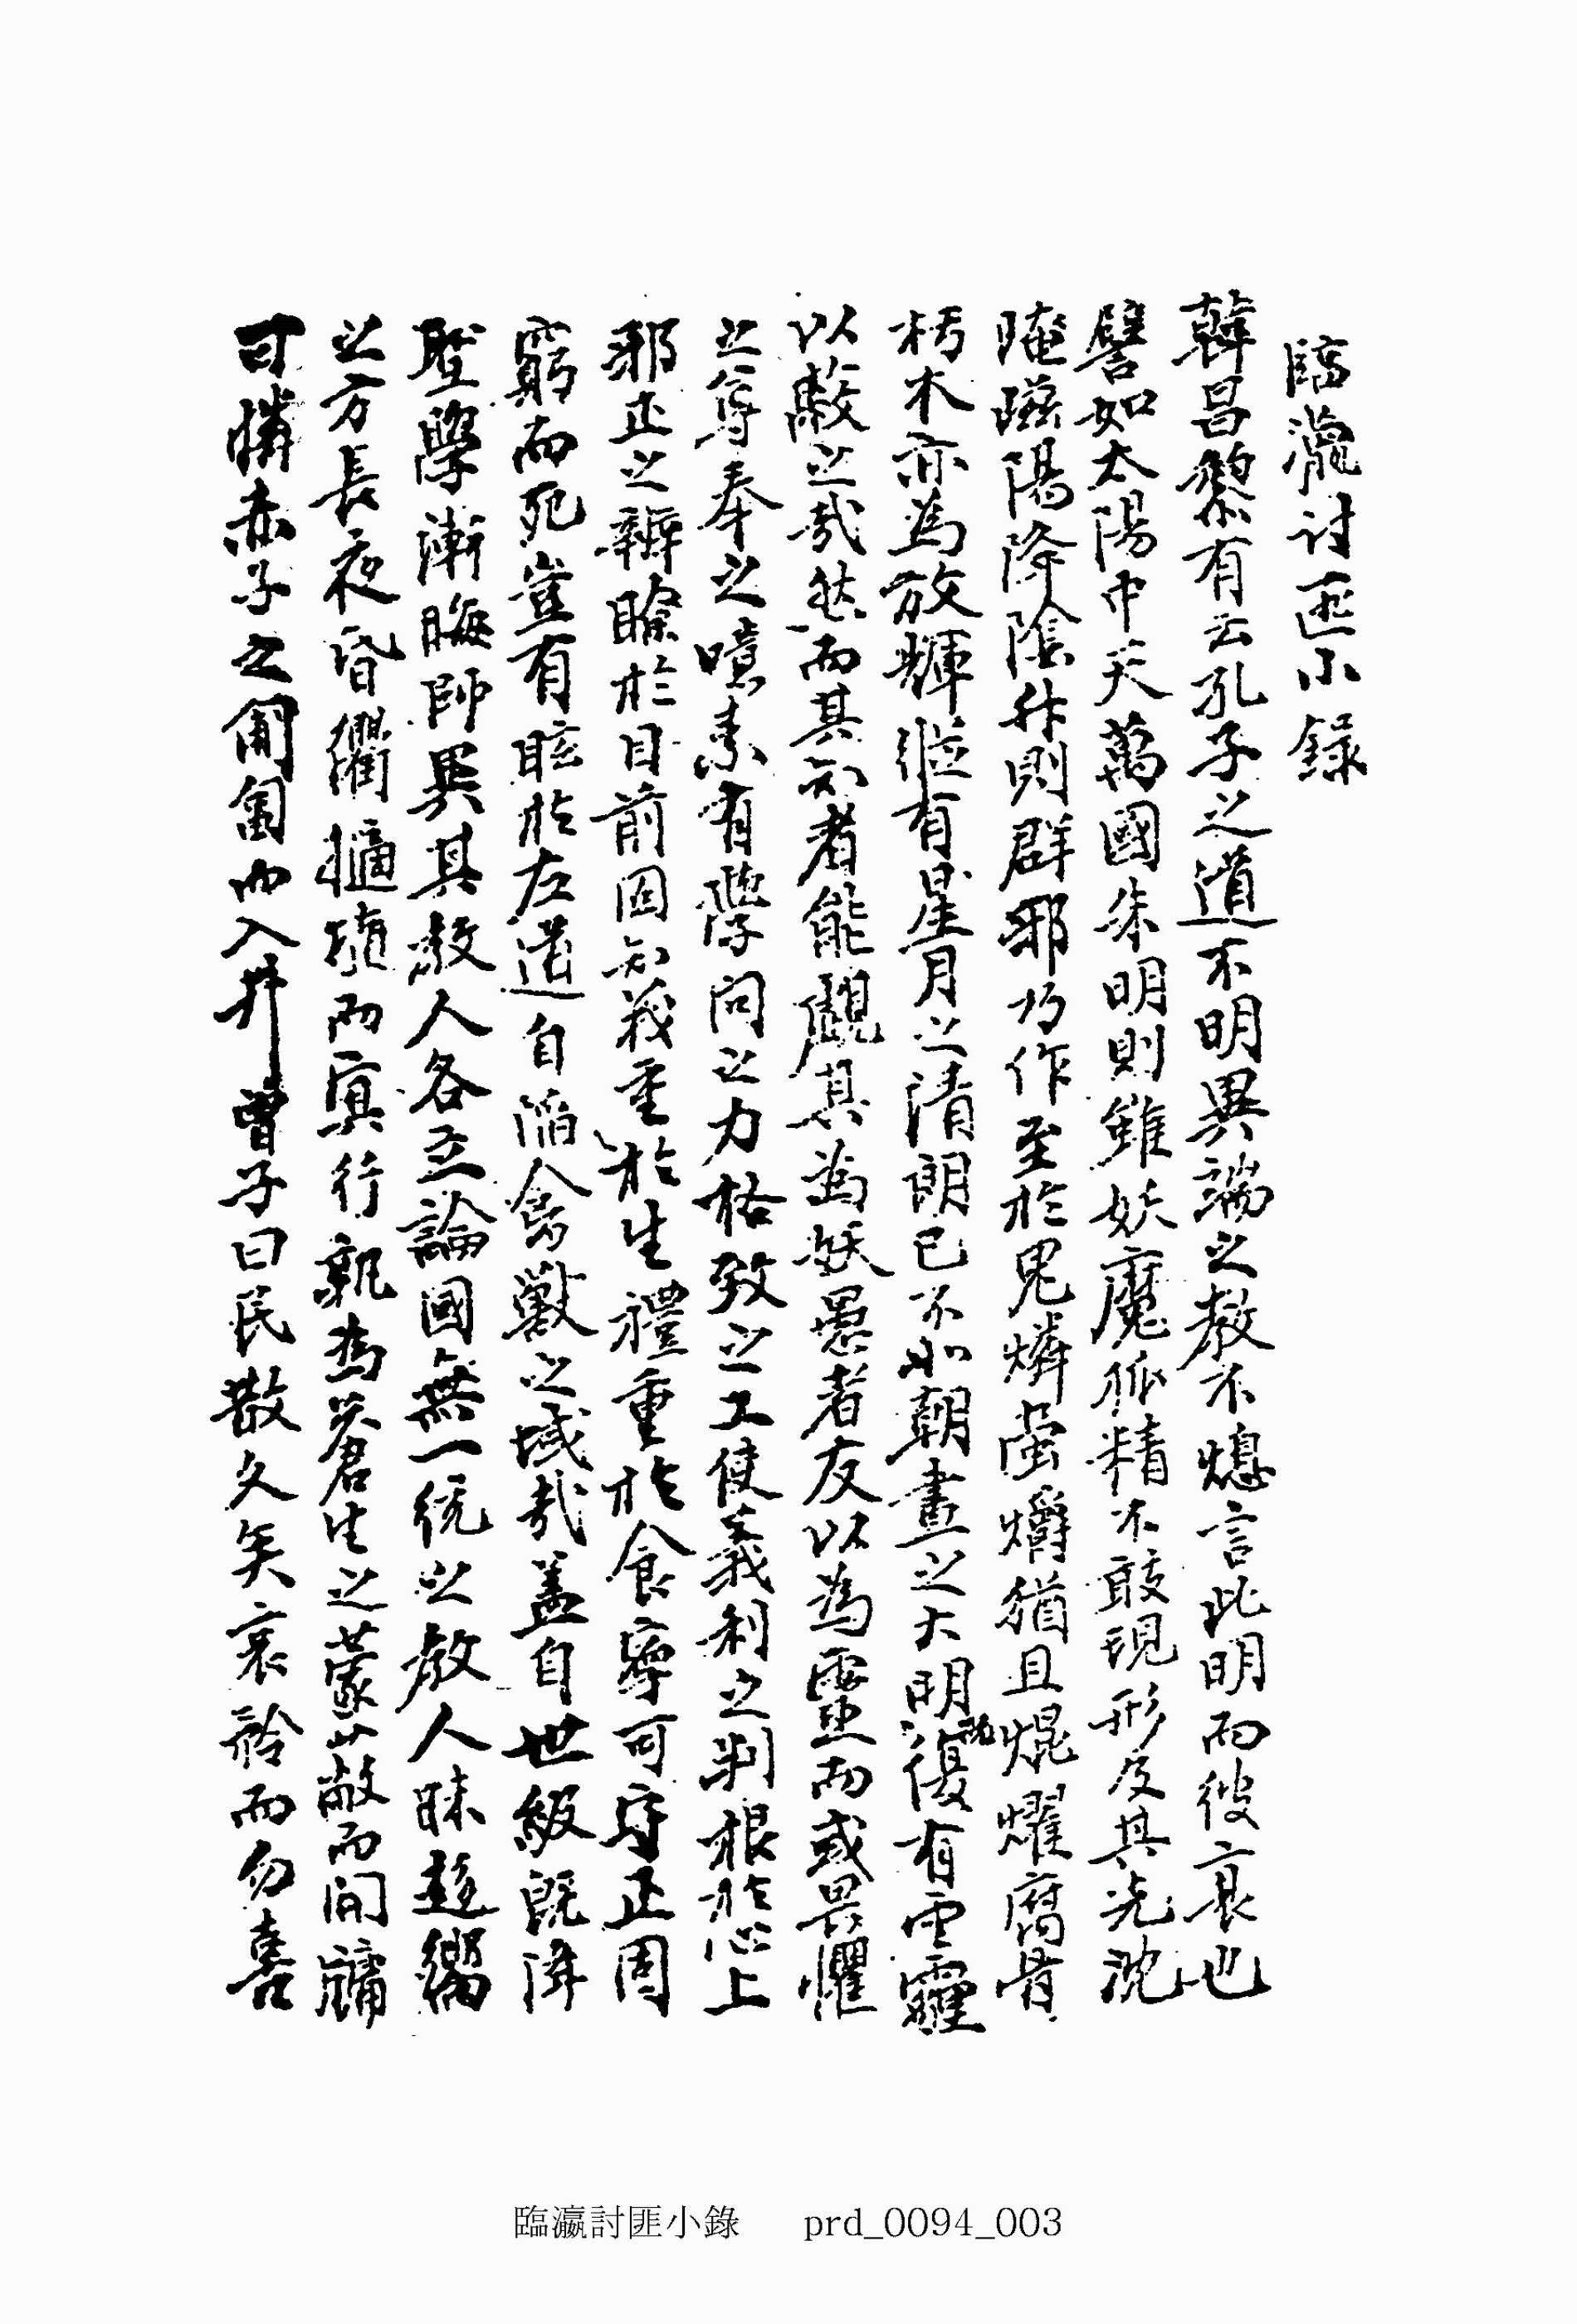 臨瀛討匪小錄
韓昌黎有云孔子之道不明異端之教不熄言此明而彼衰也
譬如太陽中天萬國朱明則雖妖魔狐精不敢現形及其光沈
陽降陰升則群邪乃作至於鬼燐螢爝猶且焜燿腐骨
朽木亦爲放輝縱有星月之清朗已不如朝晝之大明況復有雲霾
以蔽之哉然而其知者能覰其爲妖愚者友以爲靈而或畏懼
之尊奉之噫素有學問之力格致之工使義利之判根於心上
邪正之辨瞭於目前固知義重於生禮重於食寧可守正固
窮而死豈有眩於左道自陷禽獸之域哉盖自世級旣降
聖學漸晦師異其教人各立論國無一統之教人昧趍嚮
之方長夜昏衢擿埴而冥行孰爲蒼生之蒙蔽而開牖
可憐赤子之匍匐而入井曾子曰民散久矣哀矜而勿喜
臨瀛討匪小錄 prd_0094_003